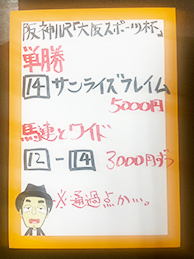 阪神11R「大阪スポーツ杯」
単勝
14 サンライズフレイム
5000円
馬連とワイド
12 - 14 3000円ずつ
※通過点かい。